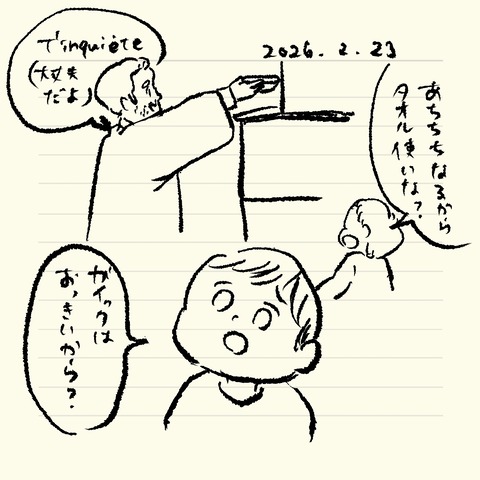 2026. 2. 23
あちちちなるから
タオル使いな？
T'inquiète
(大丈夫
だよ)
ガイックは
おっきいから？